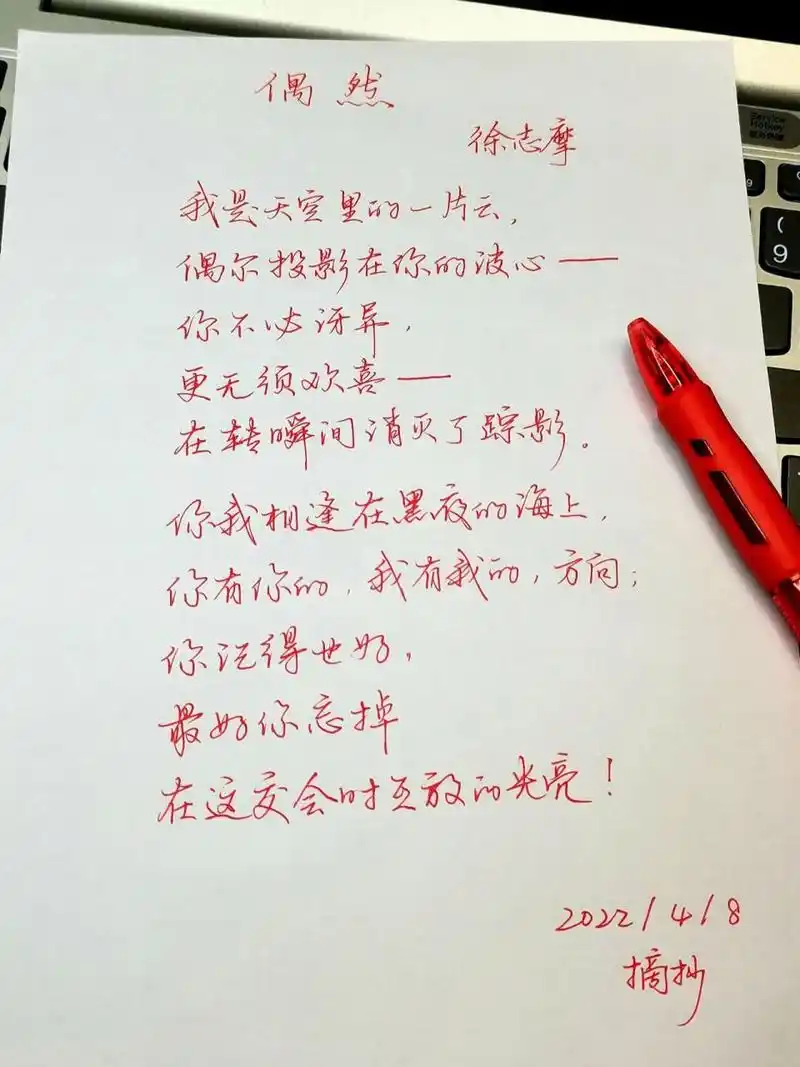 偶然
徐志摩
我是天空里的一片云，
偶尔投影在你的波心——
你不必讶异，
更无须欢喜——
在转瞬间消灭了踪影。
你我相逢在黑夜的海上，
你有你的，我有我的，方向；
你记得也好，
最好你忘掉
在这交会时互放的光亮！
2022/4/8
摘抄
Service
Hotkey
9
(
9